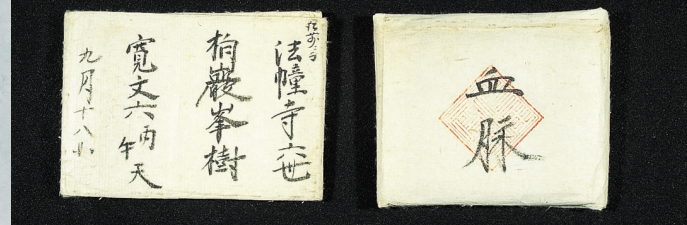 法幢寺六世
柏巖峯樹
寛文六丙午天
九月十八日
血脉